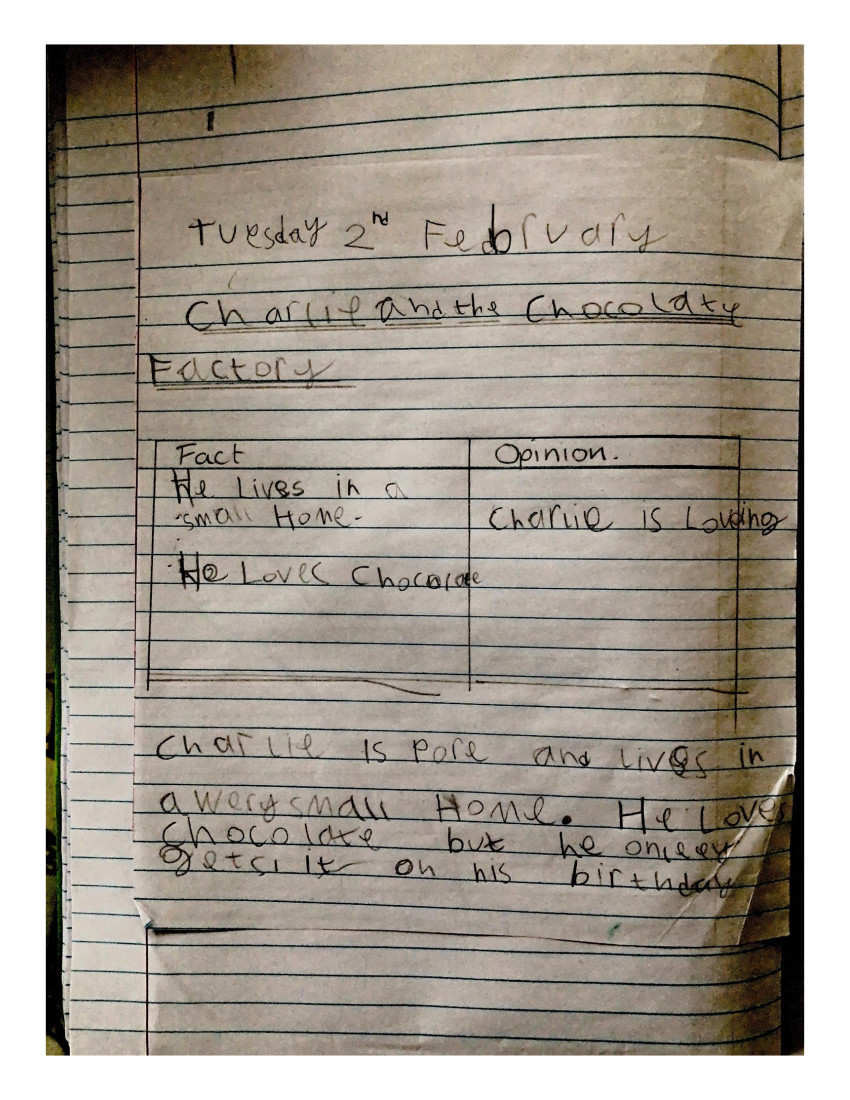 Tuesday 2nd February
Charlie and the Chocolate
Factory
Fact
Opinion.
He Lives in a
small Home.
Charlie is Loving
He Loves Chocolate
Charlie is pore and lives in
a wery small Home. He Loves
Chocolate but he onleey
gets it on his birthday